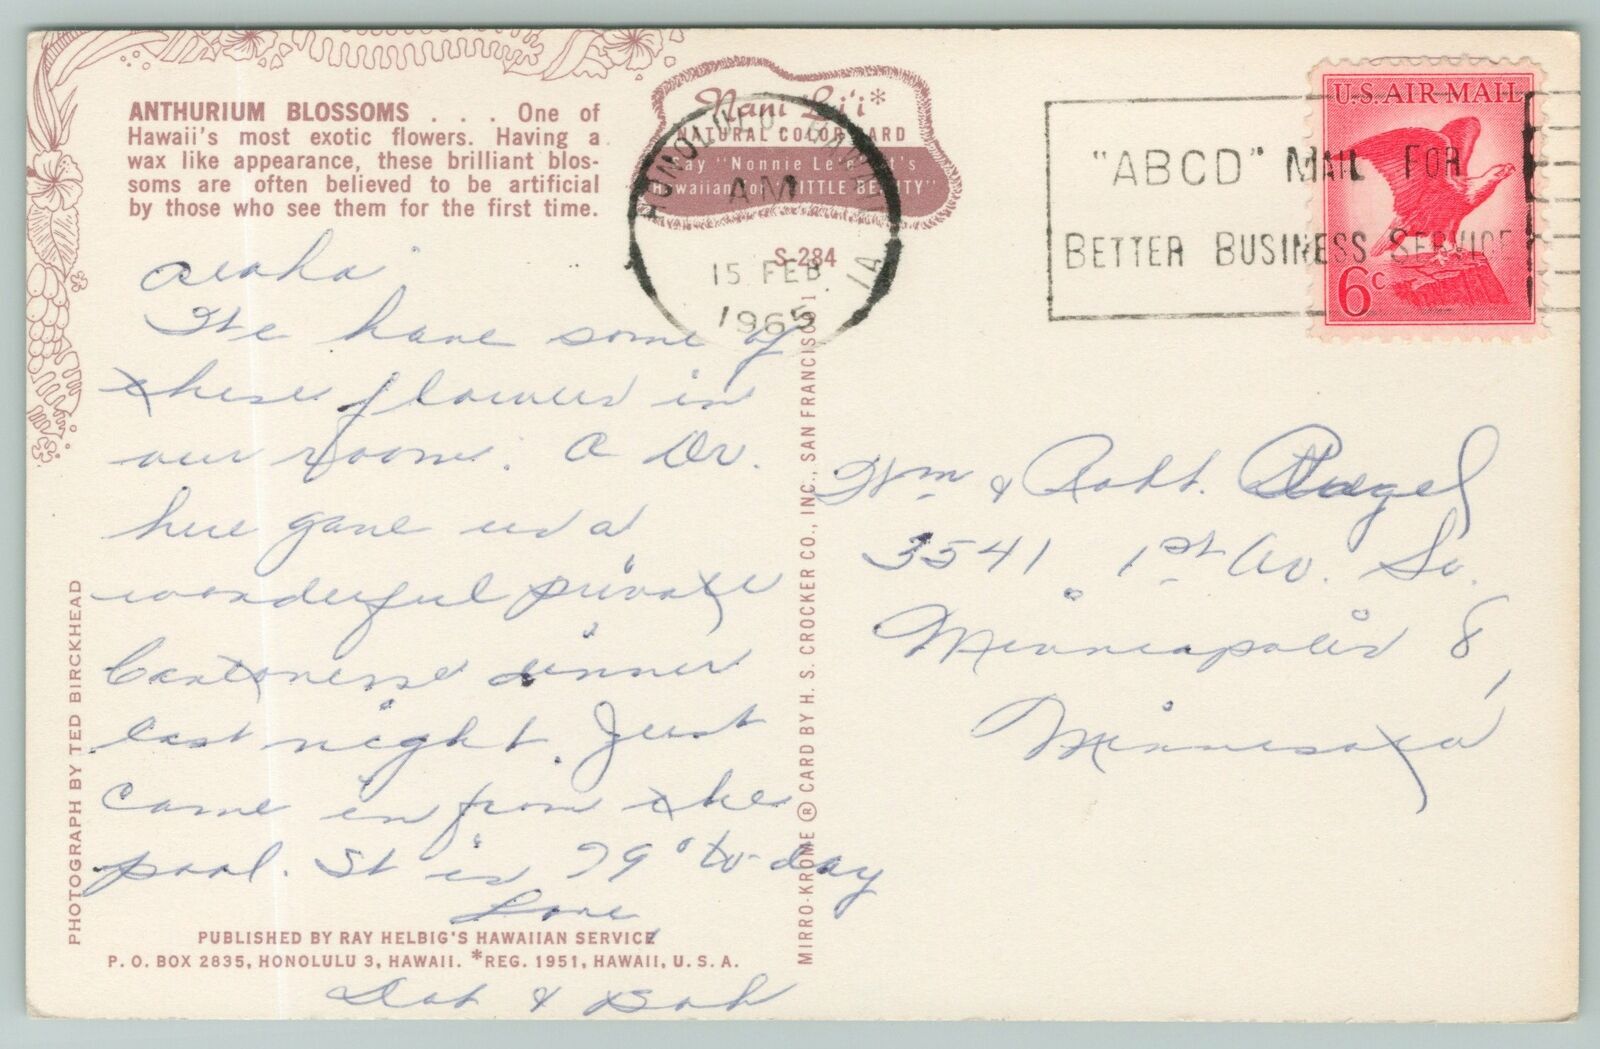 ANTHURIUM BLOSSOMS . . . One of
Hawaii's most exotic flowers. Having a
wax like appearance, these brilliant blos-
soms are often believed to be artificial
by those who see them for the first time.
Nani Li'i*
NATURAL COLOR CARD
Say "Nonnie Le'e" It's
Hawaiian for "LITTLE BEAUTY"
S-284
HONOLULU, HAWAII
AM
15 FEB
1965
1A
"ABCD" MAIL FOR
BETTER BUSINESS SERVICE
U.S. AIR MAIL
6c
Aloha
We have some of
these flowers in
our room. A Dr.
here gave us a
wonderful private
Cantonese dinner
last night. Just
came in from the
pool. It is 79° to-day
Love
Dot & Bob
Wm & Robt.
3541 1st Av. So.
Minneapolis 8,
Minnesota
PHOTOGRAPH BY TED BIRCKHEAD
MIRRO-KROME ® CARD BY H. S. CROCKER CO., INC., SAN FRANCISCO 1
PUBLISHED BY RAY HELBIG'S HAWAIIAN SERVICE
P. O. BOX 2835, HONOLULU 3, HAWAII. *REG. 1951, HAWAII, U. S. A.